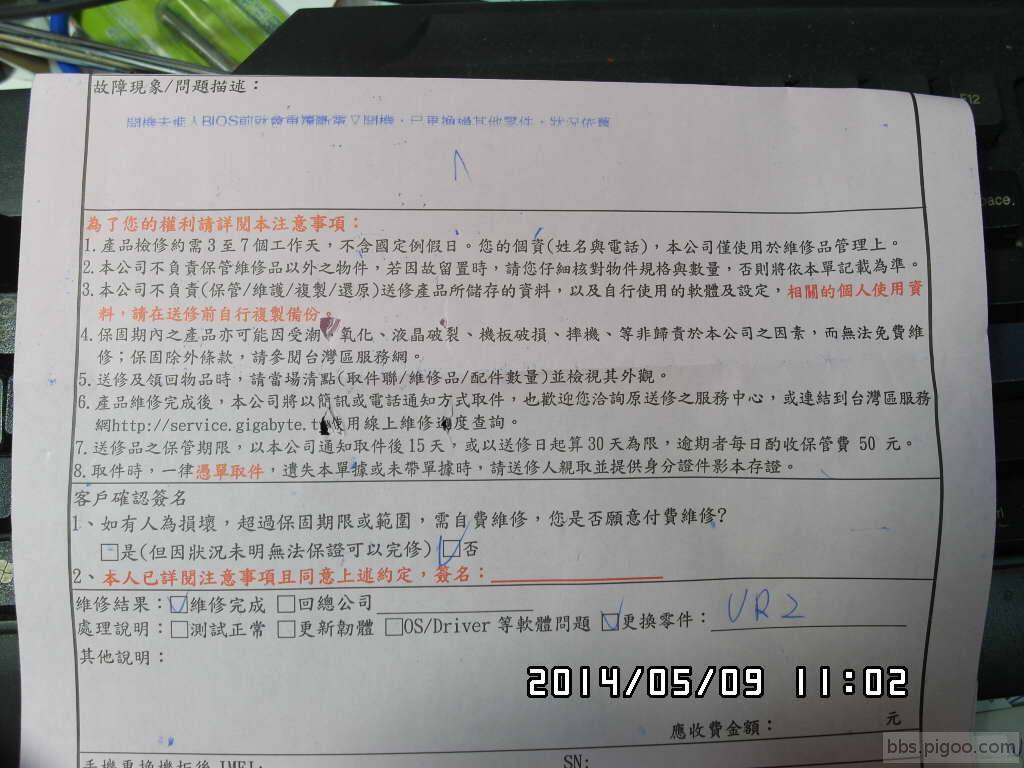 故障現象/問題描述：
為了您的權利請詳閱本注意事項：
1. 產品檢修約需 3 至 7 個工作天，不含國定例假日。您的個資(姓名與電話)，本公司僅使用於維修品管理上。
2. 本公司不負責保管維修品以外之物件，若因故留置時，請您仔細核對物件規格與數量，否則將依本單記載為準。
3. 本公司不負責(保管/維護/複製/還原)送修產品所儲存的資料，以及自行使用的軟體及設定，相關的個人使用資
料，請在送修前自行複製備份。
4. 保固期內之產品亦可能因受潮、氧化、液晶破裂、機板破損、摔機、等非歸責於本公司之因素，而無法免費維
修；保固除外條款，請參閱台灣區服務網。
5. 送修及領回物品時，請當場清點(取件聯/維修品/配件數量)並檢視其外觀。
6. 產品維修完成後，本公司將以簡訊或電話通知方式取件，也歡迎您洽詢原送修之服務中心，或連結到台灣區服務
網http://service.gigabyte.t 使用線上維修進度查詢。
7. 送修品之保管期限，以本公司通知取件後 15 天，或以送修日起算 30 天為限，逾期者每日酌收保管費 50 元。
8. 取件時，一律憑單取件，遺失本單據或未帶單據時，請送修人親取並提供身分證件影本存證。
客戶確認簽名
1、如有人為損壞，超過保固期限或範圍，需自費維修，您是否願意付費維修?
□是(但因狀況未明無法保證可以完修) □否
2、本人已詳閱注意事項且同意上述約定，簽名：
維修結果：□維修完成 □回總公司
處理說明：□測試正常 □更新韌體 □OS/Driver 等軟體問題 □更換零件： VR2
其他說明：
2014/05/09 11:02
應收費金額： 元
手機更換機板後 IMEI: SN:
F12
bbs.pigoo.com